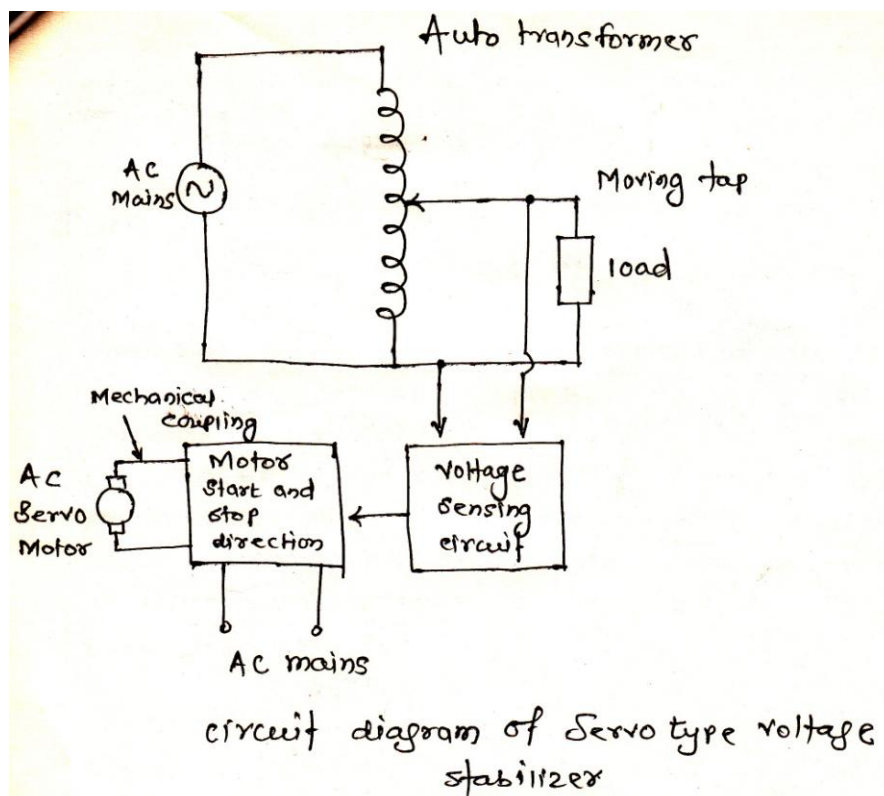 Auto transformer
AC
Mains
Moving tap
load
Mechanical
coupling
AC
Servo
Motor
Motor
start and
stop
direction
voltage
sensing
circuit
AC mains
circuit diagram of Servo type voltage
stabilizer